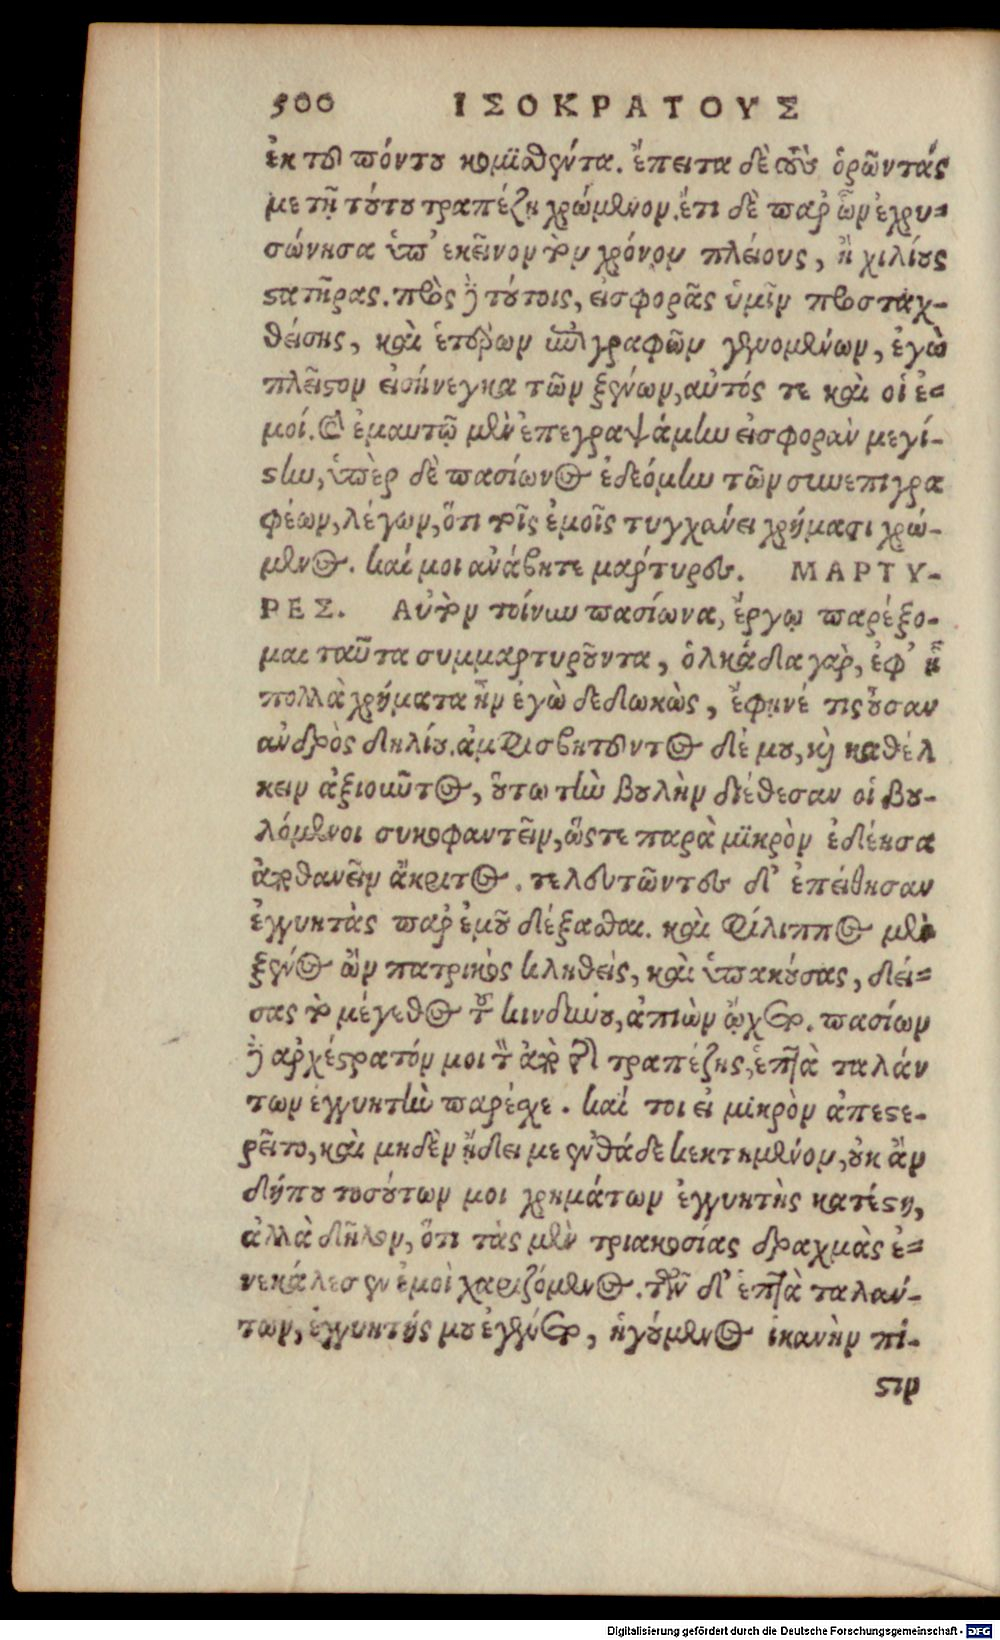 500 ΙΣΟΚΡΑΤΟΥΣ
ἐκ τοῦ πόντου κομισθέντα. ἔπειτα δὲ τοὺς ὁρῶντάς
με τῇ τούτου τραπέζῃ χρώμενον. ἔτι δὲ παρ' ὧν ἐχρυ-
σώνησα ὑπ' ἐκεῖνον τὸν χρόνον πλείους, ἢ χιλίους
στατῆρας. πρὸς δὲ τούτοις, εἰσφορᾶς ὑμῖν προσταχ-
θείσης, καὶ ἑτέρων ἐπιγραφῶν γενομένων, ἐγὼ
πλεῖστον εἰσήνεγκα τῶν ξένων, αὐτός τε καὶ οἱ ἐ-
μοί. καὶ ἐμαυτῷ μὲν ἐπεγραψάμην εἰσφορὰν μεγί-
στην, ὑπὲρ δὲ πασίωνος ἐδεόμην τῶν συνεπιγρα
φέων, λέγων, ὅτι τοῖς ἐμοῖς τυγχάνει χρήμασι χρώ-
μενος. καί μοι ἀνάβητε μάρτυρες. ΜΑΡΤΥ-
ΡΕΣ. Αὐτὸν τοίνυν πασίωνα, ἔργῳ παρέξο-
μαι ταῦτα συμμαρτυροῦντα, ὁλκάδα γὰρ, ἐφ' ᾗ
πολλὰ χρήματα ἦν ἐγὼ δεδωκὼς, ἔφηνέ τις οὖσαν
ἀνδρὸς δηλίου. ἀμφισβητοῦντος δέ μου, καὶ καθέλ
κειν ἀξιοῦντος, οὕτω τὴν βουλὴν διέθεσαν οἱ βου-
λόμενοι συκοφαντεῖν, ὥστε παρὰ μικρὸν ἐδέησα
ἀποθανεῖν ἄκριτος. τελευτῶντες δ' ἐπείσθησαν
ἐγγυητὰς παρ' ἐμοῦ δέξασθαι. καὶ Φίλιππος μὲν
ξένος ὢν πατρικὸς κληθεὶς, καὶ ὑπακούσας, δεί-
σας τὸ μέγεθος τοῦ κινδύνου, ἀπιὼν ᾤχετο. πασίων
δὲ ἀρχέστρατόν μοι τὸν ἀπὸ τῆς τραπέζης, ἑπτὰ ταλάν
των ἐγγυητὴν παρέσχε. καί τοι εἰ μικρὸν ἀπεστε-
ρεῖτο, καὶ μηδὲν ᾔδει με ἐνθάδε κεκτημένον, οὐκ ἂν
δήπου τοσούτων μοι χρημάτων ἐγγυητὴς κατέστη,
ἀλλὰ δῆλον, ὅτι τὰς μὲν τριακοσίας δραχμὰς ἐ-
νεκάλεσεν ἐμοὶ χαριζόμενος. τῶν δ' ἑπτὰ ταλάν-
των, ἐγγυητής μου ἐγένετο, ἡγούμενος ἱκανὴν πί-
στιν
Digitalisierung gefördert durch die Deutsche Forschungsgemeinschaft - DFG